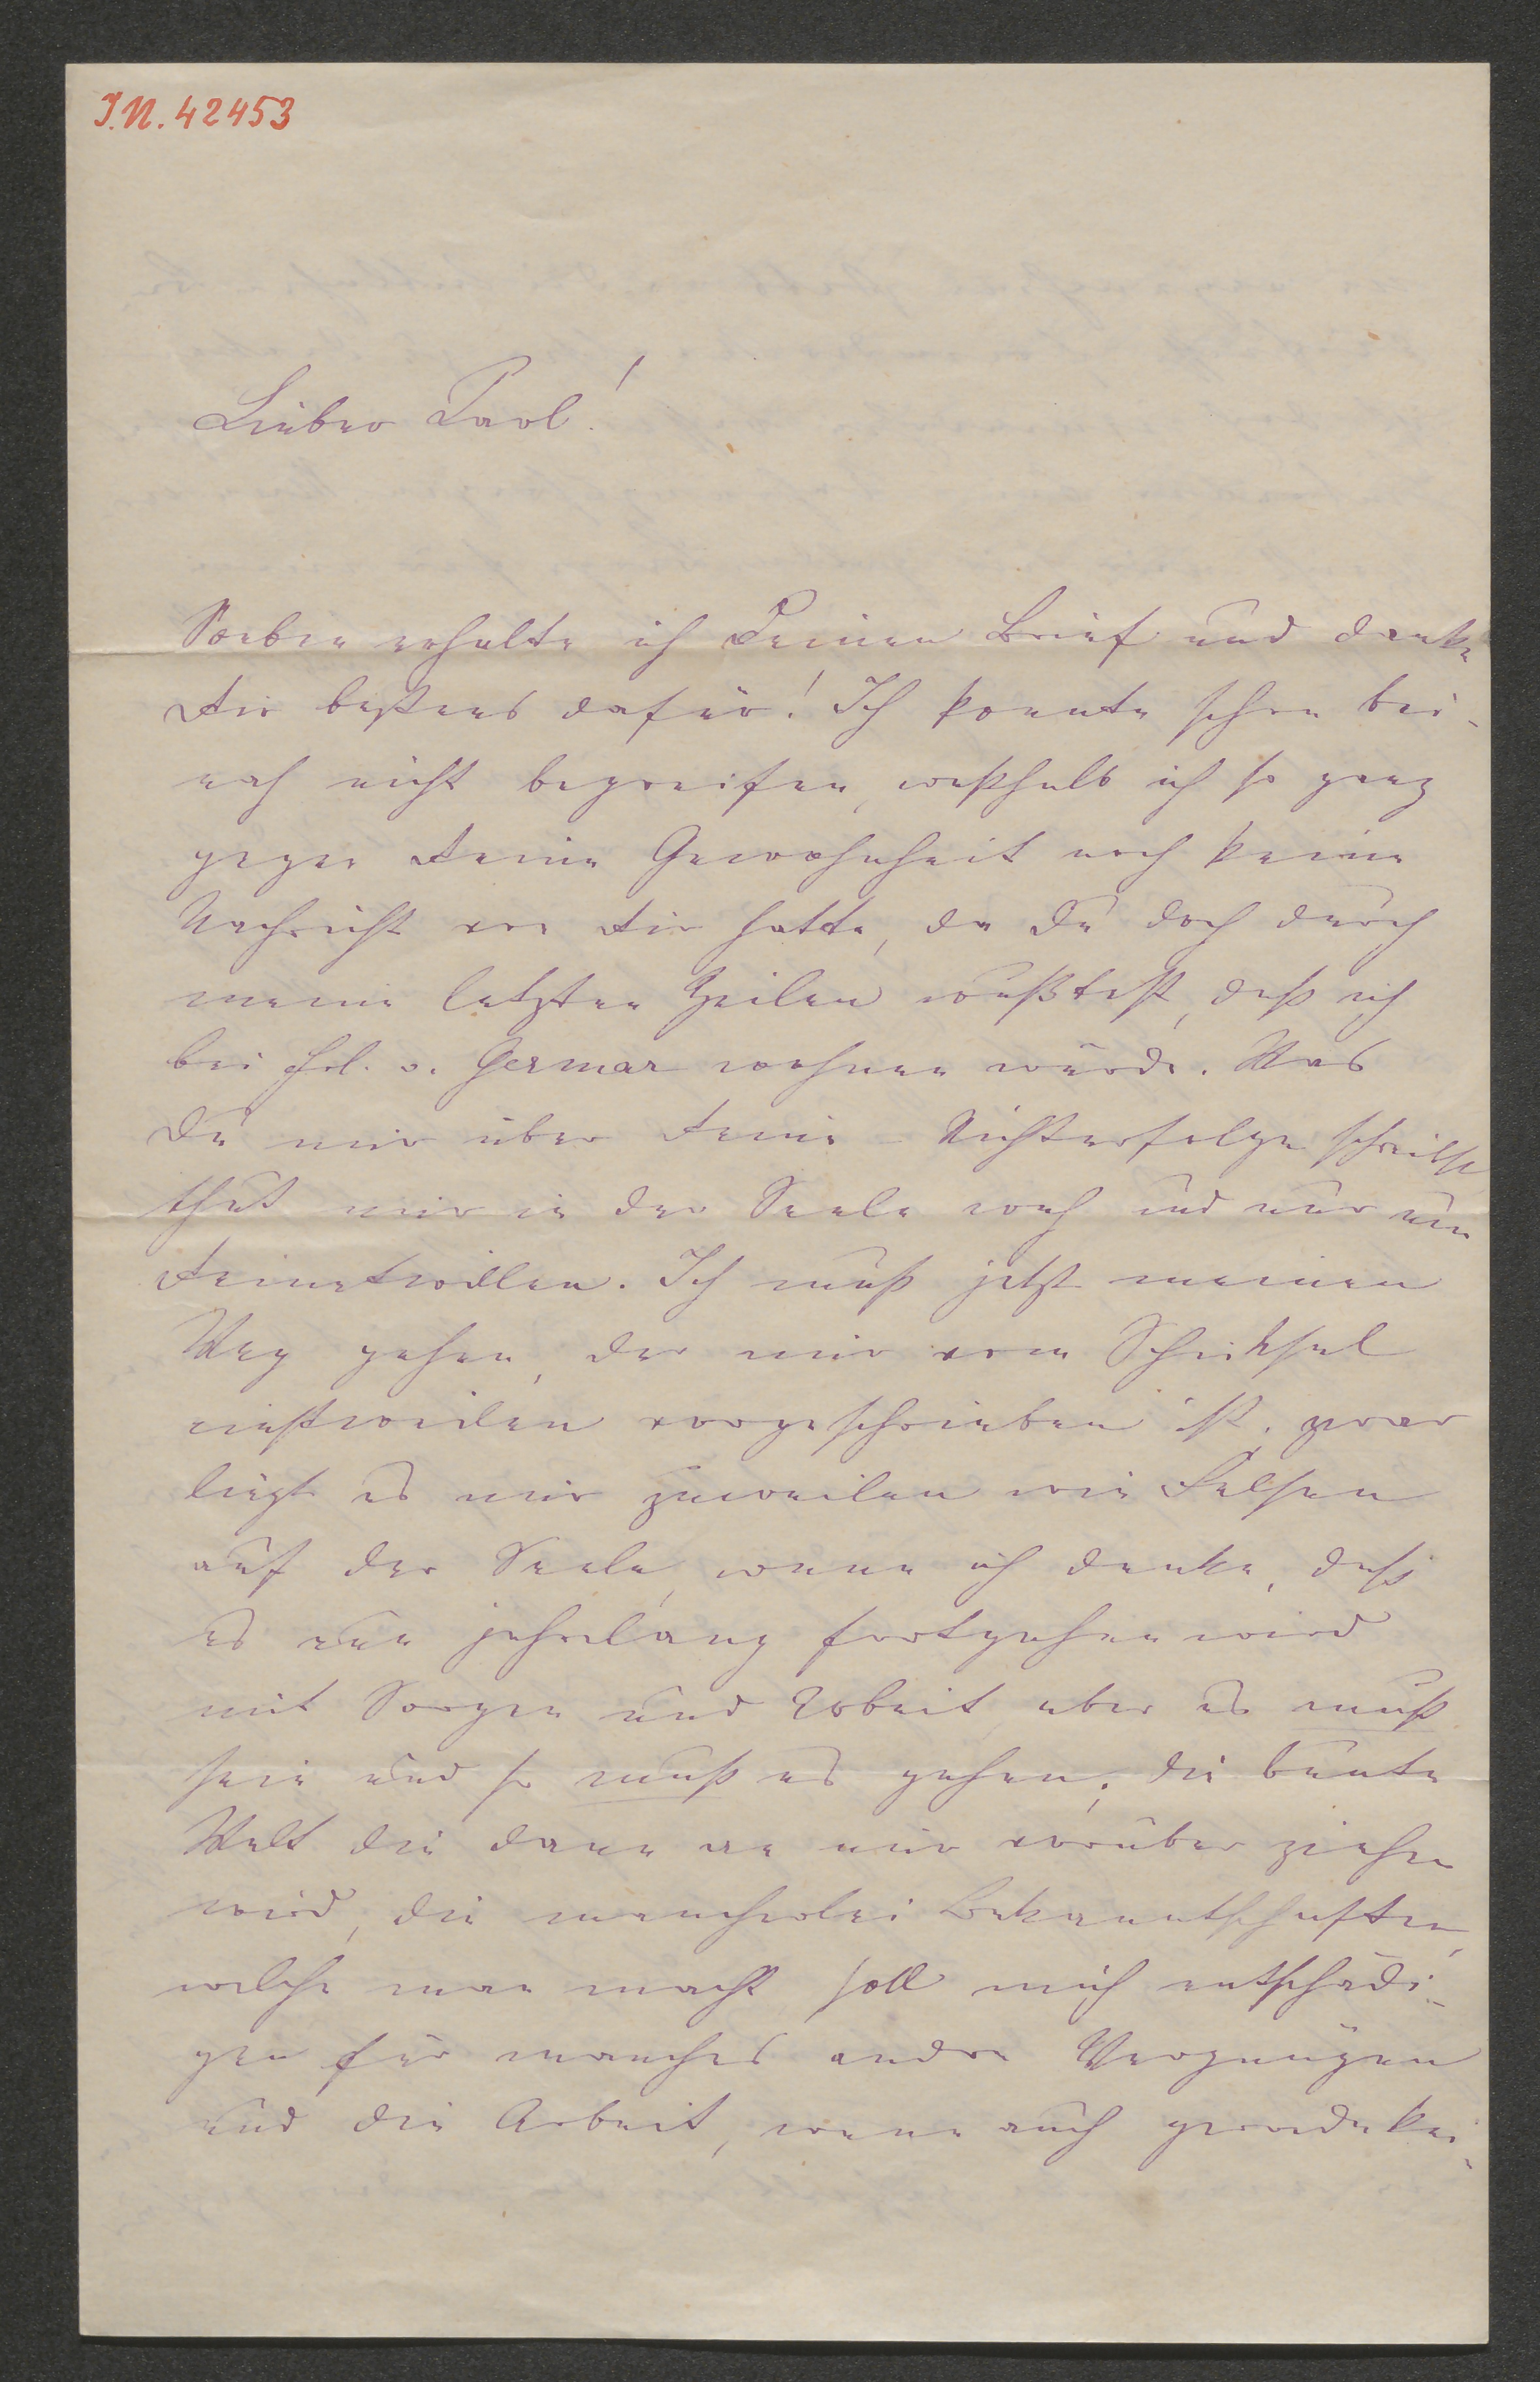 I.N. 42453
Lieber Carl!
Soeben erhalte ich Deinen Brief und danke
Dir bestens dafür! Ich konnte schon bei-
nah nicht begreifen, weßhalb ich so ganz
gegen Deine Gewohnheit noch keine
Nachricht von Dir hatte, da Du doch durch
meine letzten Zeilen wußtest, daß ich
bei Frl. v. Germar wohnen würde. Was
Du mir über Deine – Nichterfolge schreibst
thut mir in der Seele weh und nur um
Deinetwillen. Ich muß jetzt meinen
Weg gehen, der mir vom Schicksal
einstweilen vorgeschrieben ist, zwar
liegt es mir zuweilen wie Felsen
auf der Seele, wenn ich denke, daß
es nun jahrelang fortgehen wird
mit Sorgen und Arbeit, aber es muß
sein und so muß es gehen; die bunte
Welt die dann an mir vorüber ziehen
wird, die mancherlei Bekanntschaften,
welche man macht soll mich entschädi-
gen für manches andre Vergnügen
und die Arbeit, wenn auch gerade kei-